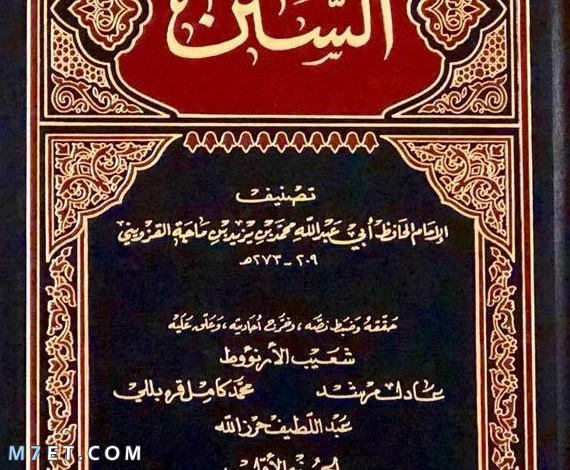 السنن
تصنيف
الإمام الحافظ أبي عبد الله محمد بن يزيد بن ماجة القزويني
٢٠٩ - ٢٧٣هـ
حققه وضبط نصه، وخرج أحاديثه، وعلق عليه
شعيب الأرنؤوط
عادل مرشد محمد كامل قره بللي
عبد اللطيف حرز الله
الجزء الأول
M7ET.COM